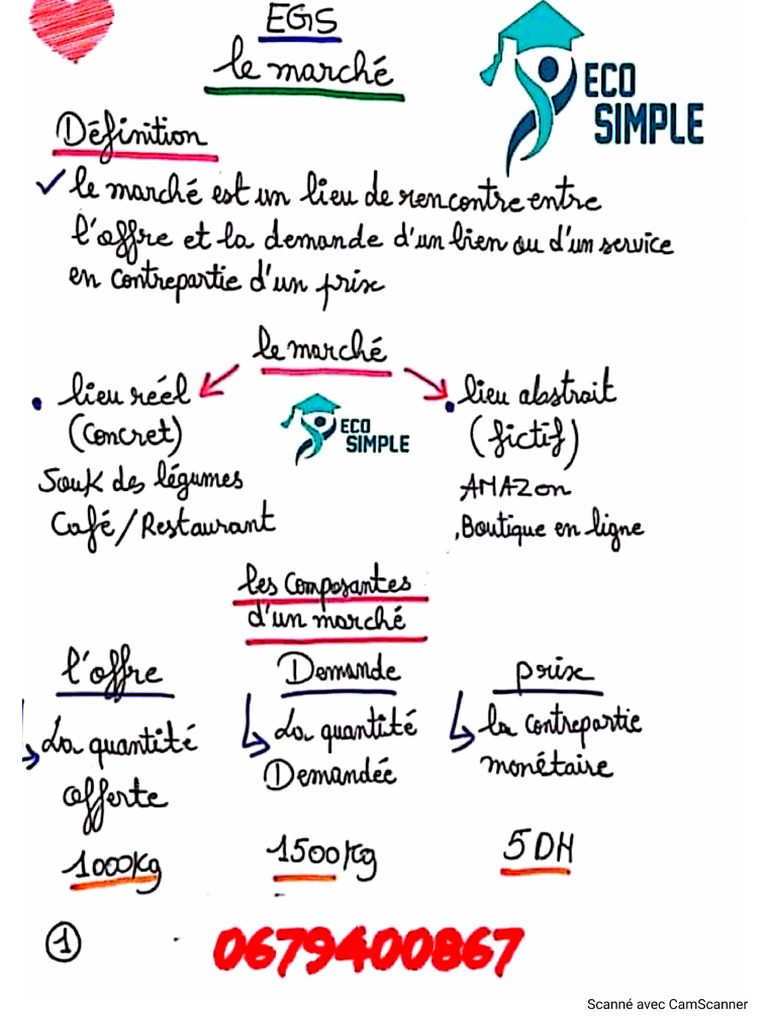 EGS
le marché
ECO
SIMPLE
Définition
✓ le marché est un lieu de rencontre entre
l'offre et la demande d'un bien ou d'un service
en contrepartie d'un prix
le marché
• lieu réel
(Concret)
Souk des légumes
Café/Restaurant
ECO
SIMPLE
• lieu abstrait
(fictif)
AMAZon
,Boutique en ligne
les Composantes
d'un marché
l'offre
La quantité
offerte
1000Kg
Demande
La quantité
Demandée
1500Kg
prix
la contrepartie
monétaire
5DH
1
0679400867
Scanné avec CamScanner